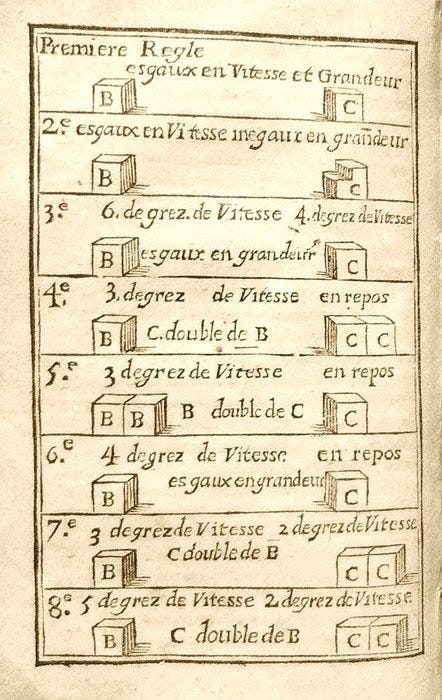 Premiere Regle
esgaux en Vitesse et Grandeur
B C
2.e esgaux en Vitesse inegaux en grandeur
B C
3.e 6. degrez. de Vitesse 4. degrez de Vitesse
B esgaux en grandeur C
4.e 3. degrez de Vitesse en repos
B C. double de B C C
5.e 3 degrez de Vitesse en repos
B B B double de C C
6.e 4 degrez de Vitesse en repos
B esgaux en grandeur C
7.e 3 degrez de Vitesse 2 degrez de Vitesse
B C double de B C C
8.e 5 degrez de Vitesse 2 degrez de Vitesse
B C double de B C C